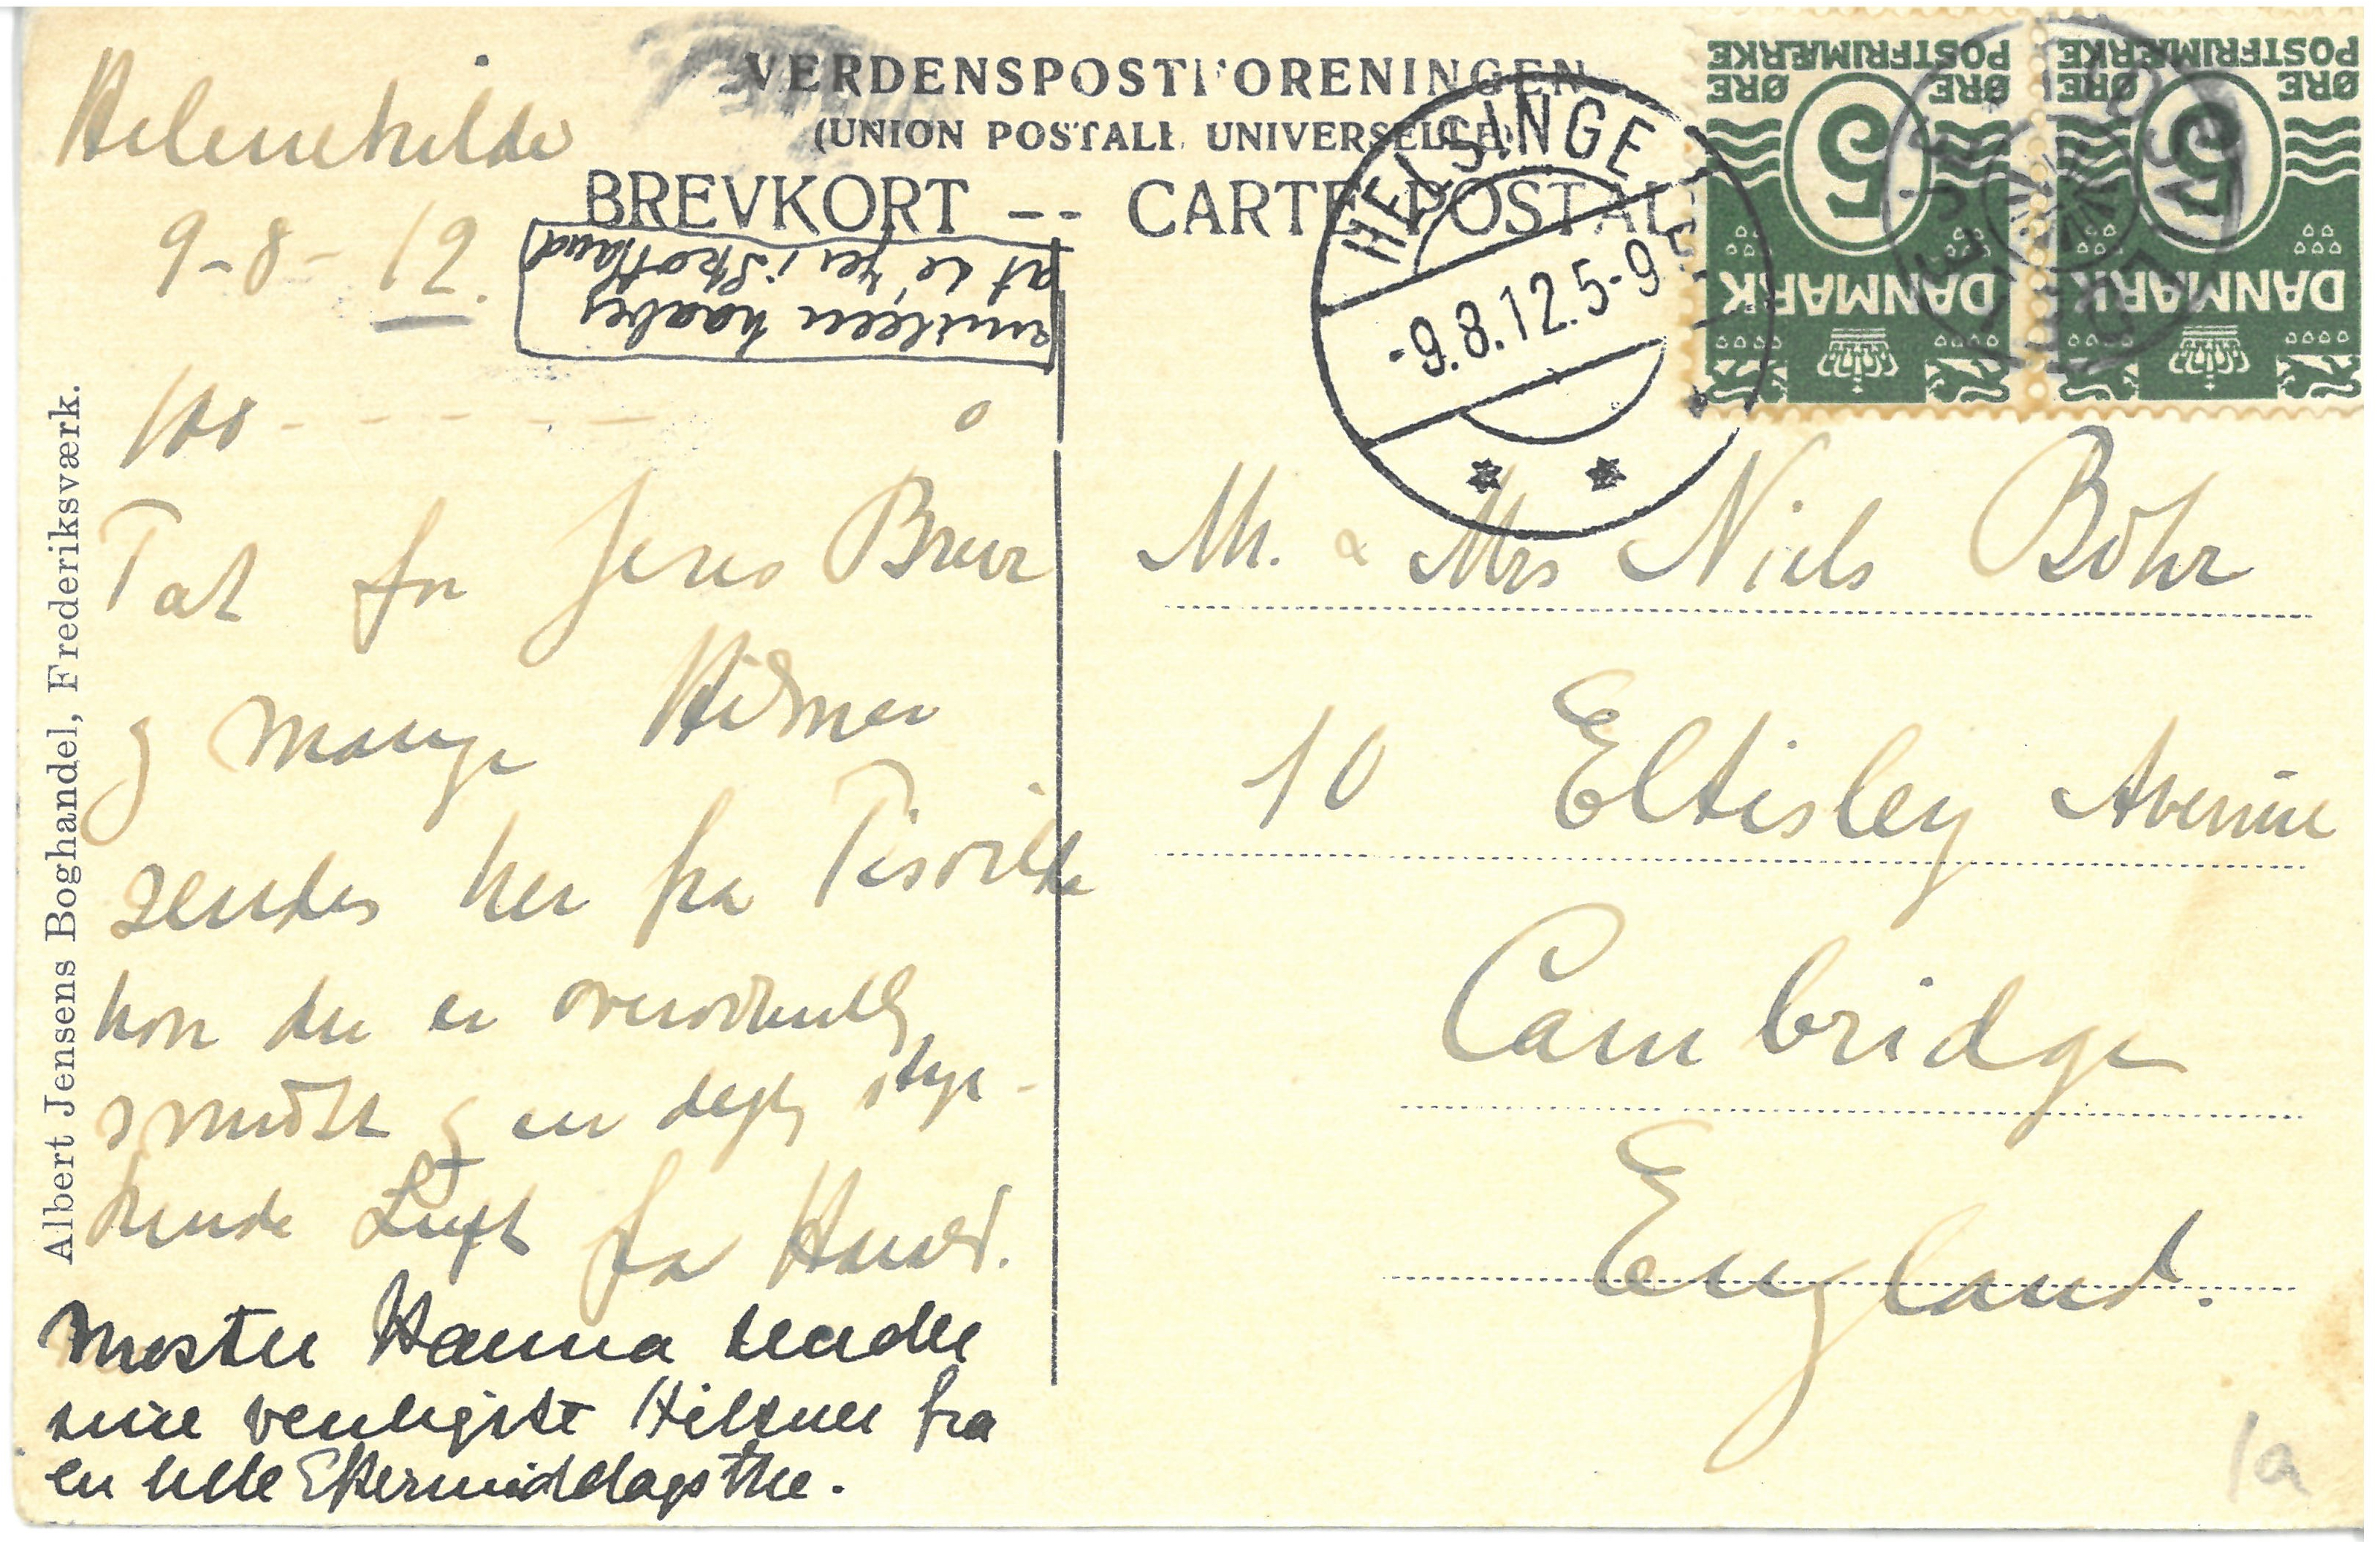 VERDENSPOSTFORENINGEN
(UNION POSTALE UNIVERSELLE)
BREVKORT -- CARTE POSTALE
HELSINGE
-9.8.12.5-9 E
POSTFRIMÆRKE
ØRE 5 ØRE
DANMARK
POSTFRIMÆRKE
ØRE 5 ØRE
DANMARK
Helenekilde
9-8-12.
imidlern haabes
at de er i Skotland
Tak for Jeres Brev
og mange Hilsner
sendes her fra Tisvilde
hvor der er overordentlig
smukt og en dejlig styr-
kende Luft fra Havet.
Moster Hanna sender
sine venligste Hilsner fra
en lille Eftermiddagsthe.
Albert Jensens Boghandel, Frederiksværk.
Mr. & Mrs Niels Bohr
10 Eltisley Avenue
Cambridge
England.
1a